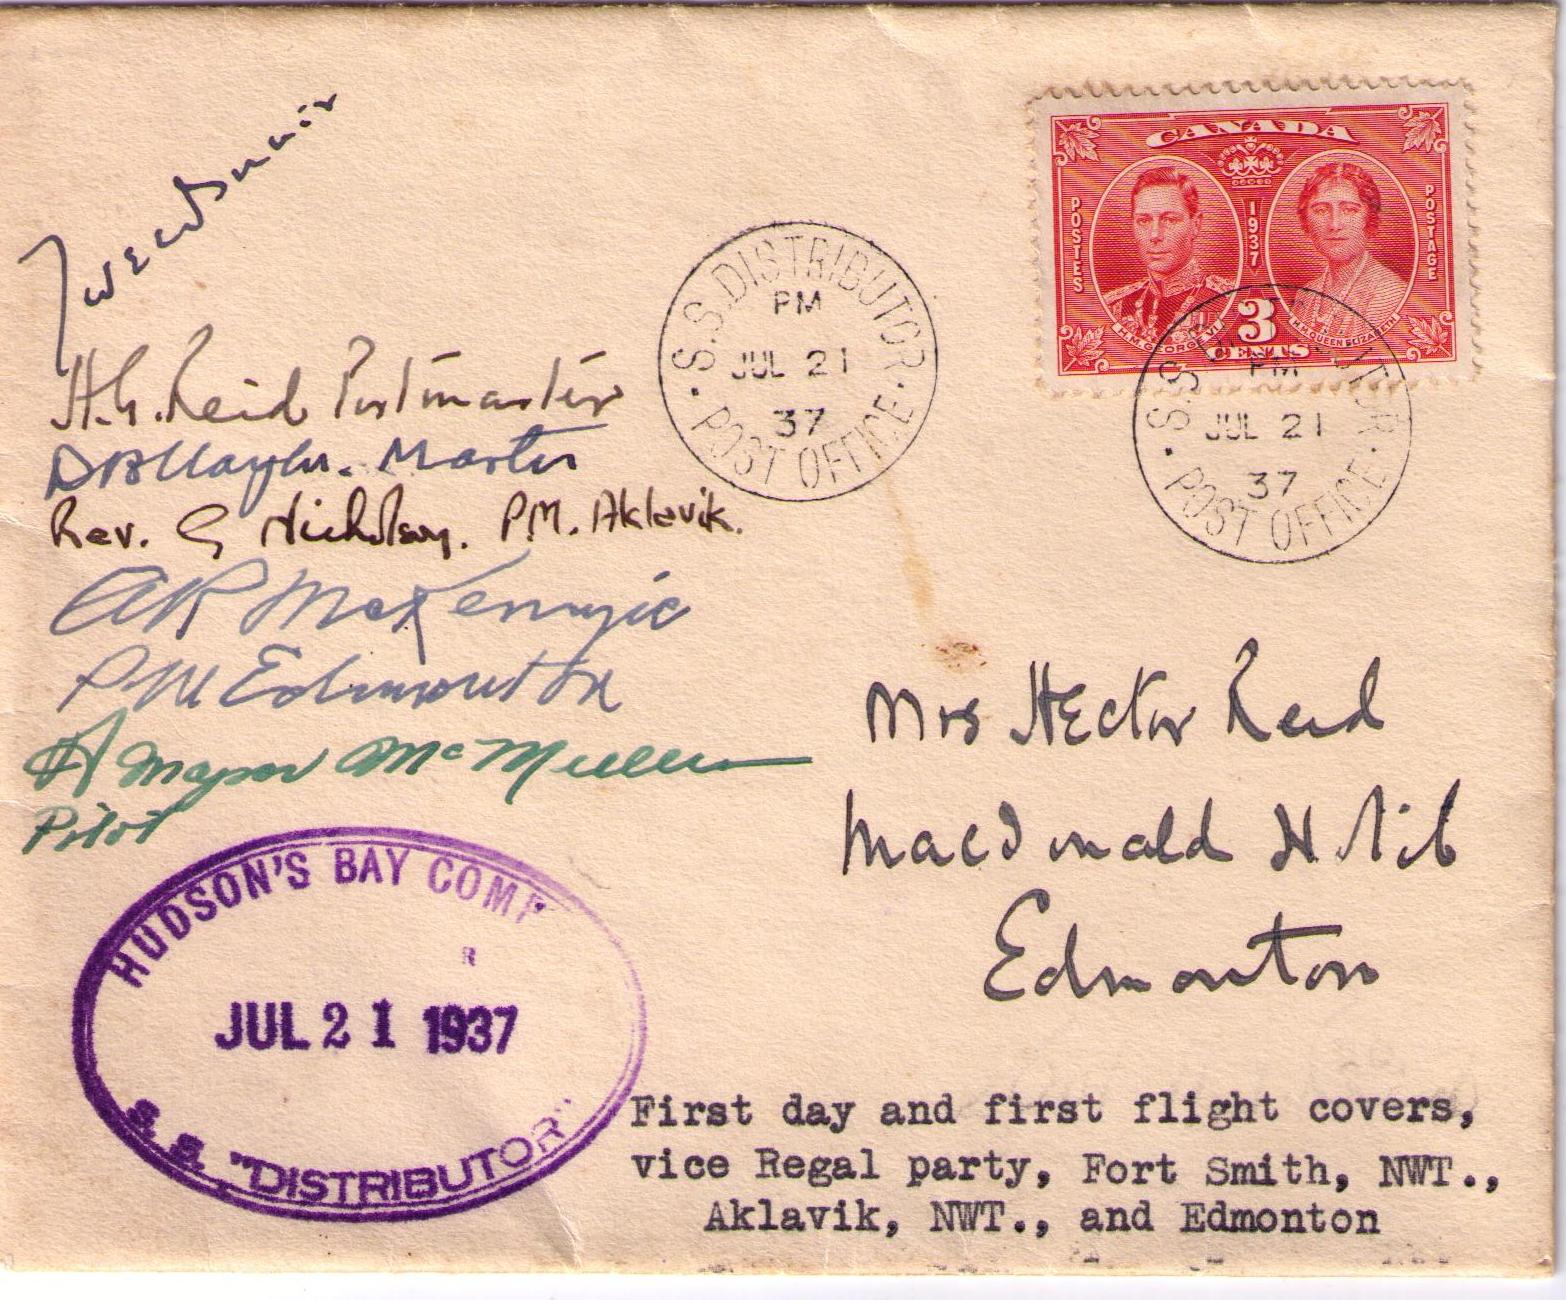 Tweedsmuir
H.G. Reid Postmaster
Master
Rev. G Nicholson. P.M. Aklavik.
AR McKenzie
PM Edmonton
Major McMullen
Pilot
CANADA
POSTES
1937
POSTAGE
H.M. GEORGE VI
H.M. QUEEN ELIZABETH
3
CENTS
S.S. DISTRIBUTOR
PM
JUL 21
37
POST OFFICE
S.S. DISTRIBUTOR
PM
JUL 21
37
POST OFFICE
Mrs Hector Reid
Macdonald Hotel
Edmonton
HUDSON'S BAY COMP
R
JUL 21 1937
S. S. "DISTRIBUTOR"
First day and first flight covers,
vice Regal party, Fort Smith, NWT.,
Aklavik, NWT., and Edmonton